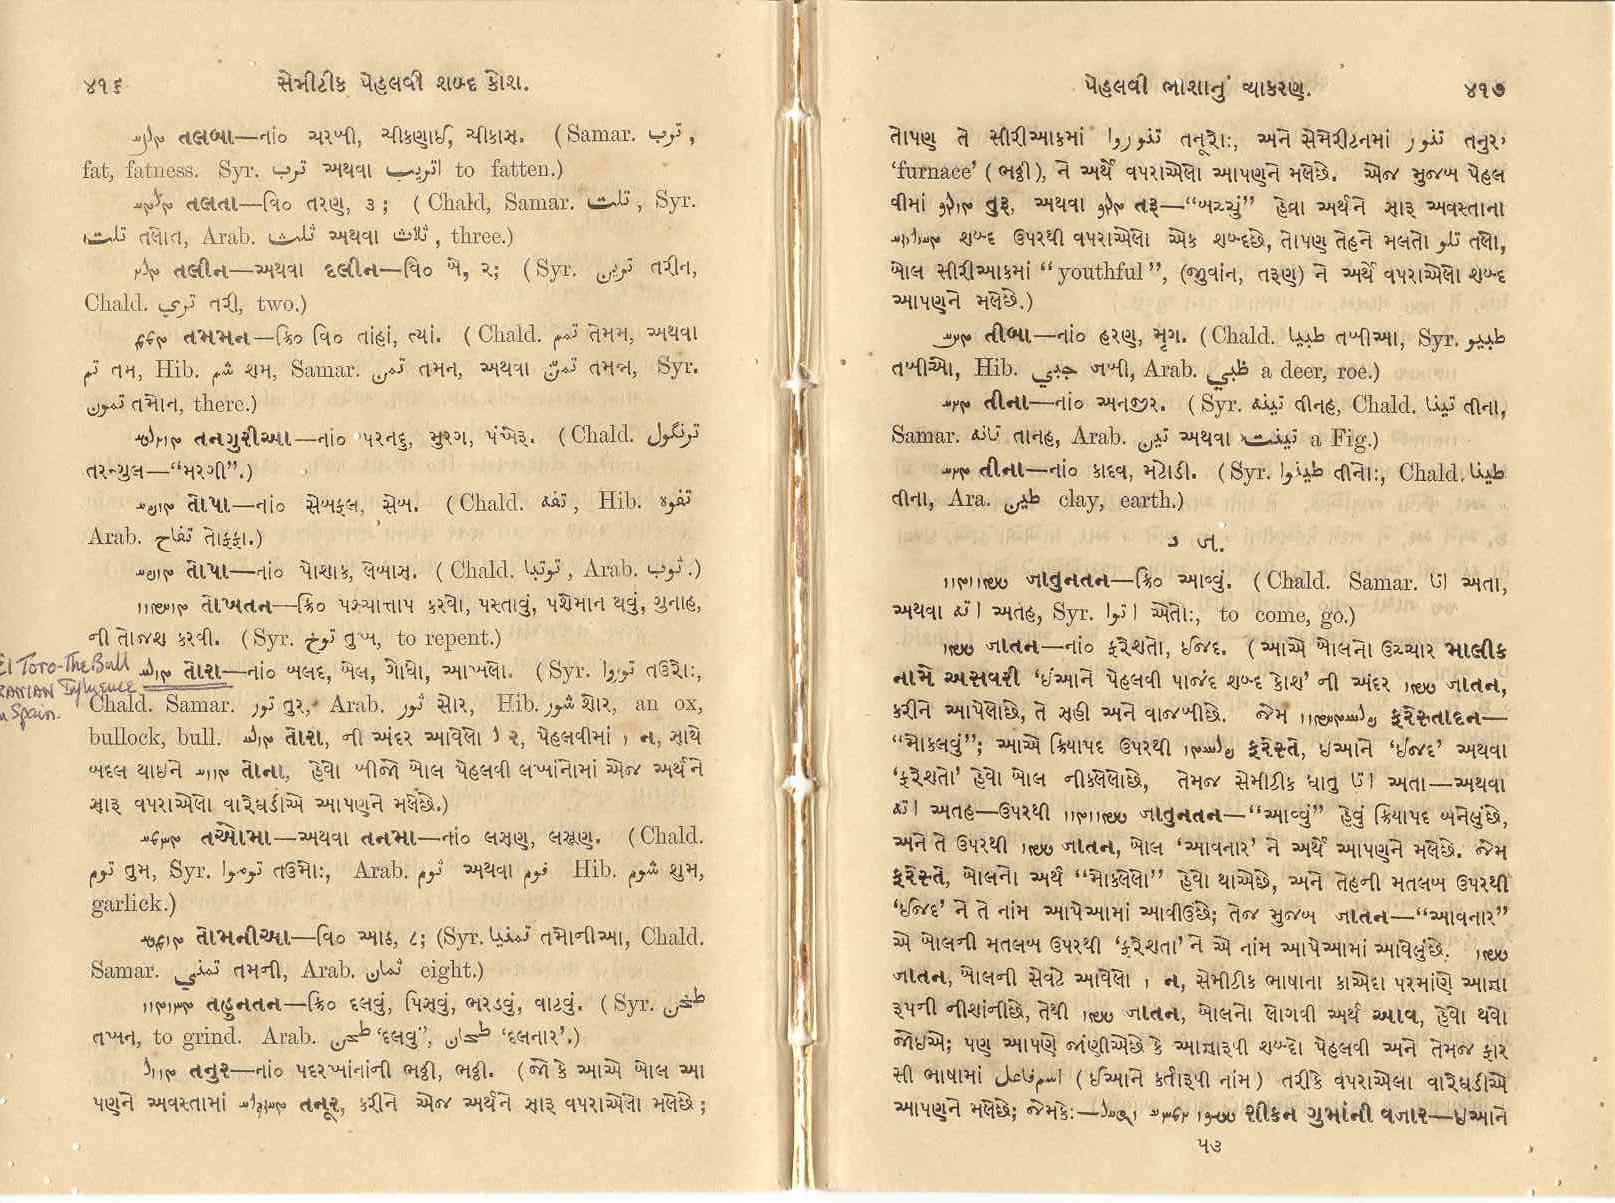 ૪૧૬ સેમીટીક પેહલવી શબ્દ કોશ.
તલબા—નાં૦ ચરબી, ચીકણાઈ, ચીકાસ. (Samar. توب,
fat, fatness. Syr. توب અથવા اتريب to fatten.)
તલતા—વિ૦ તરણ, ૩; (Chald, Samar. تلت, Syr.
تلت તલોત, Arab. ثلث અથવા ثلاث, three.)
તલીન—અથવા દલીન—વિ૦ બે, ૨; (Syr. تورين તરીન,
Chald. تري તરી, two.)
તમમન—ક્રિ૦ વિ૦ તાંહાં, ત્યાં. (Chald. تمم તેમમ, અથવા
تم તમ, Hib. شم શમ, Samar. تمن તમન, અથવા تمنّ તમન્ન, Syr.
تمون તમોન, there.)
તનગુરીઆ—નાં૦ પરનદુ, મુરગ, પંખેરૂ. (Chald. تونگول
તરન્ગુલ—“મરગી”.)
તોપા—નાં૦ સેબફલ, સેબ. (Chald. تفه, Hib. تفوه
Arab. تفاح તોફફા.)
તોપા—નાં૦ પોશાક, લેબાસ. (Chald. توتيا, Arab. ثوب.)
તોખતન—ક્રિ૦ પશ્ચાત્તાપ કરવો, પસ્તાવું, પશેમાન થવું, ગુનાહ,
ની તોજશ કરવી. (Syr. توخ તુખ, to repent.)
El Toro-The Bull
IRANIAN Influence
in Spain.
તોરા—નાં૦ બલદ, બેલ, ગોધો, આખલો. (Syr. توروا તઉરોઃ,
Chald. Samar. تور તુર, Arab. ثور સોર, Hib. شور શોર, an ox,
bullock, bull. તોરા, ની અંદર આવેલો ર, પેહલવીમાં ન, સાથે
બદલ થાઇને તોના, હેવો બીજો બોલ પેહલવી લખાંનોમાં એજ અર્થને
સારૂ વપરાએલો વારેઘડીએ આપણને મલેછે.)
તઓમા—અથવા તનમા—નાં૦ લસણ, લસૂણ. (Chald.
توم તુમ, Syr. توموا તઉમોઃ, Arab. ثوم અથવા فوم Hib. شوم શુમ,
garlick.)
તોમનીઆ—વિ૦ આઠ, ૮; (Syr. تمنيا તમોનીઆ, Chald.
Samar. تمني તમની, Arab. ثمان eight.)
તહુનતન—ક્રિ૦ દલવું, પિસવું, ભરડવું, વાટવું. (Syr. طخن
તખન, to grind. Arab. طحن ‘દલવું’, طحان ‘દલનાર’.)
તનુર—નાં૦ પદરખાંનાંની ભઠ્ઠી, ભઠ્ઠી. (જો કે આએ બોલ આ
પણને અવસ્તામાં તનૂર, કરીને એજ અર્થને સારૂ વપરાએલો મલેછે;
પેહલવી ભાશાનું વ્યાકરણ. ૪૧૭
તોપણ તે સીરીઆકમાં تنوروا તનૂરોઃ, અને સેમેરીટનમાં تنور તનુર,
‘furnace’ (ભઠ્ઠી), ને અર્થે વપરાએલો આપણને મલેછે. એજ મુજબ પેહલ
વીમાં તુરૂ, અથવા તરૂ—“બચ્ચું” હેવા અર્થને સારૂ અવસ્તાના
શબ્દ ઉપરથી વપરાએલો એક શબ્દછે, તોપણ તેહને મલતો تلو તલો,
બોલ સીરીઆકમાં “youthful”, (જુવાંન, તરૂણ) ને અર્થે વપરાએલો શબ્દ
આપણને મલેછે.)
તીબા—નાં૦ હરણ, મૃગ. (Chald. طبيا તબીઆ, Syr. طبيو
તબીઓ, Hib. جبي જબી, Arab. ظبي a deer, roe.)
તીના—નાં૦ અનજીર. (Syr. تينه તીનહ, Chald. تينا તીના,
Samar. تانه તાનહ, Arab. تين અથવા تينت a Fig.)
તીના—નાં૦ કાદવ, મટોડી. (Syr. طينوا તીનોઃ, Chald. طينا
તીના, Ara. طين clay, earth.)
જ.
જાતુનતન—ક્રિ૦ આવ્વું. (Chald. Samar. اتا અતા,
અથવા اته અતહ, Syr. اتوا એતોઃ, to come, go.)
જાતન—નાં૦ ફરેશતો, ઇજિદ. (આએ બોલનો ઉચ્ચાર માલીક
નામે અસવરી ‘ઇઆને પેહલવી પાજંદ શબ્દ કોશ’ ની અંદર જાતન,
કરીને આપેલોછે, તે સહી અને વાજબીછે. જેમ ફરેસ્તાદન—
“મોકલવું”; આએ ક્રિયાપદ ઉપરથી ફરેસ્તે, ઇઆને ‘ઇજદ’ અથવા
‘ફરેશતો’ હેવો બોલ નીકલેલોછે, તેમજ સેમીટીક ધાતુ اتا અતા—અથવા
اته અતહ—ઉપરથી જાતુનતન—“આવ્વું” હેવું ક્રિયાપદ બનેલુંછે,
અને તે ઉપરથી જાતન, બોલ ‘આવનાર’ ને અર્થે આપણને મલેછે. જેમ
ફરેસ્તે, બોલનો અર્થ “મોકલેલો” હેવો થાએછે, અને તેહની મતલબ ઉપરથી
‘ઇજિદ’ ને તે નાંમ આપેઆમાં આવીઉંછે; તેજ મુજબ જાતન—“આવનાર”
એ બોલની મતલબ ઉપરથી ‘ફરેશતા’ ને એ નાંમ આપેઆમાં આવેલુંછે.
જાતન, બોલની સેવટે આવેલો ન, સેમીટીક ભાષાના કાએદા પરમાંણે આજ્ઞા
રૂપની નીશાંનીછે, તેથી જાતન, બોલનો લાગવી અર્થ આવ, હેવો થવો
જોઇએ; પણ આપણે જાંણીએછે કે આજ્ઞારૂપી શબ્દો પેહલવી અને તેમજ ફાર
સી ભાષામાં اسم فاعل (ઈઆને કર્તારૂપી નાંમ) તરીકે વપરાએલા વારેઘડીએ
આપણને મલેછે; જેમકેઃ— શીકન ગુમાંની વજાર—ઇઆને
૫૩